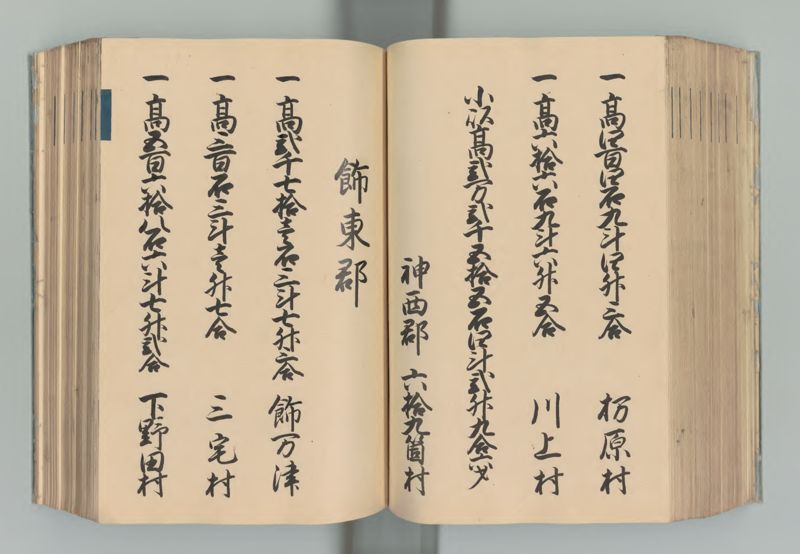 一 高四百四石九斗四升二合 杤原村
一 高六拾六石九斗六升五合 川上村
小以高弐万弐千五拾五石四斗弐升九合六夕
神西郡 六拾九箇村
飾東郡
一 高弐千七拾壱石二斗七升二合 飾万津
一 高三百石三斗壱升七合 三宅村
一 高五百六拾八石六斗七升弐合 下野田村